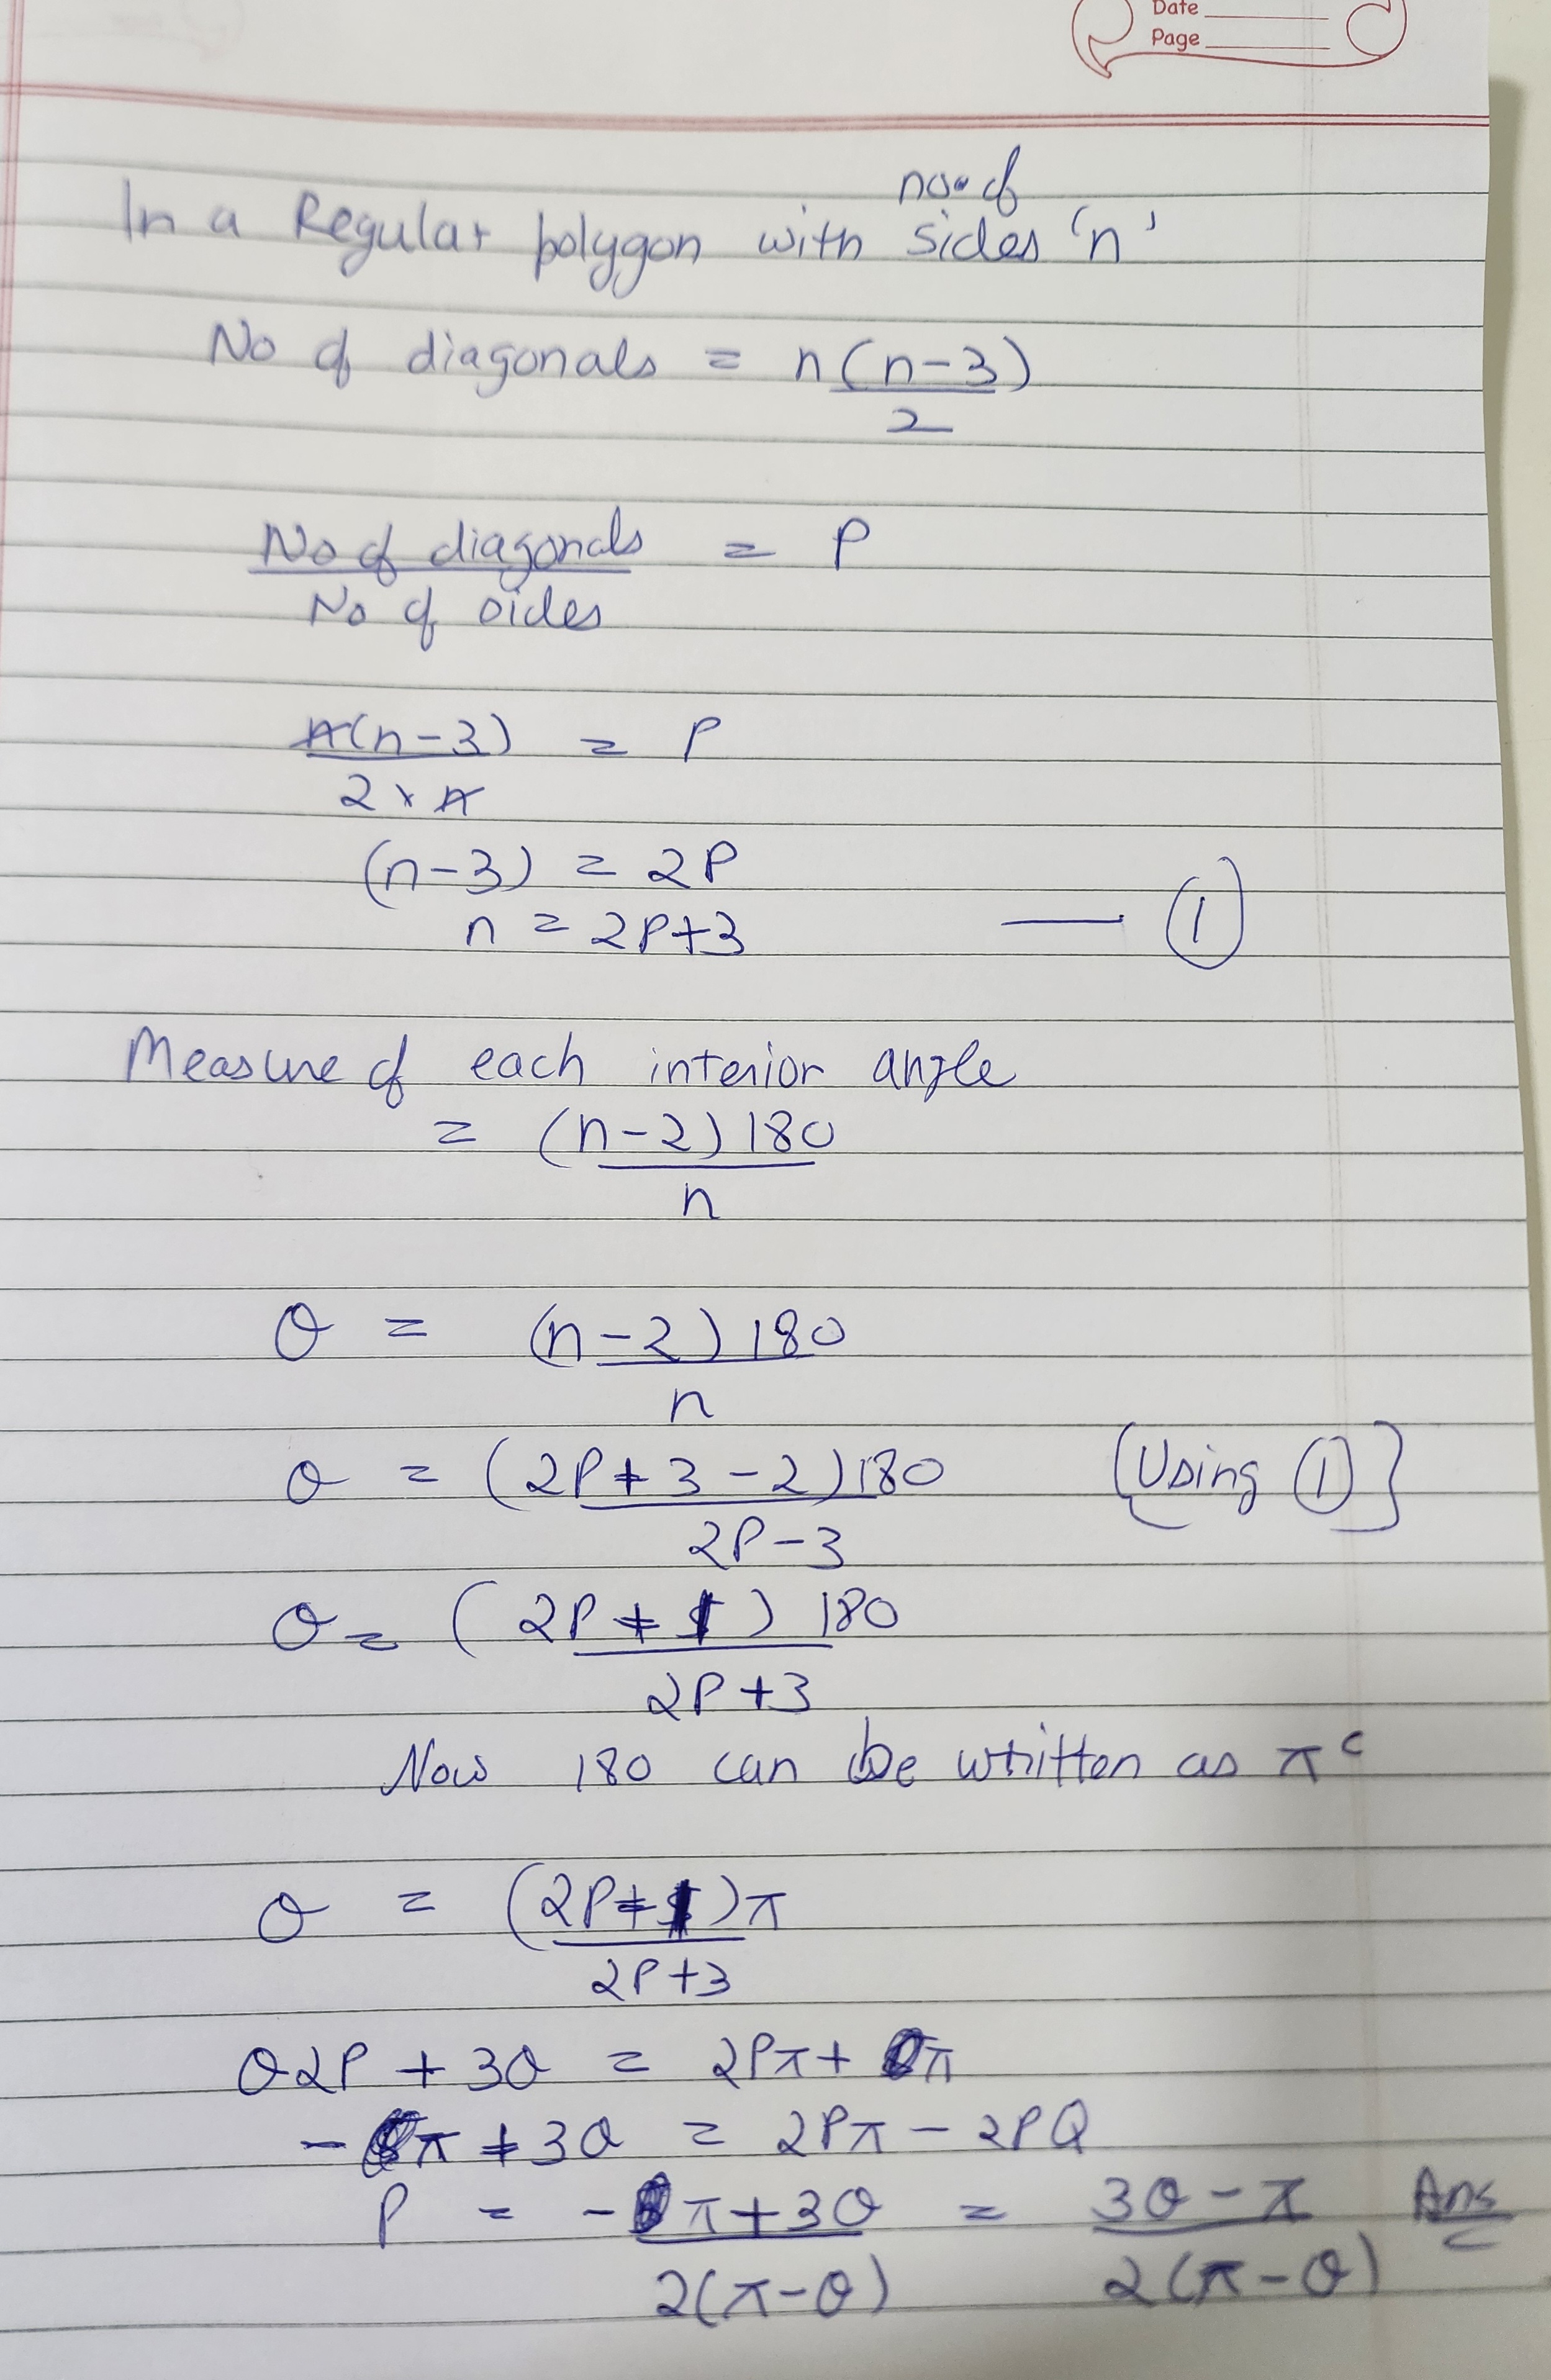 Date
Page
no. of
In a Regular polygon with sides 'n'
No of diagonals = n(n-3)
2
No of diagonals = P
No of sides
n(n-3) = P
2 × n
(n-3) = 2P
n = 2P+3 — ①
Measure of each interior angle
= (n-2) 180
n
θ = (n-2) 180
n
θ = (2P+3-2)180 {Using ①}
2P-3
θ = (2P+1) 180
2P+3
Now 180 can be written as π^c
θ = (2P+1)π
2P+3
θ2P + 3θ = 2Pπ + π
-π + 3θ = 2Pπ - 2Pθ
P = -π+3θ = 3θ-π Ans
2(π-θ) 2(π-θ)